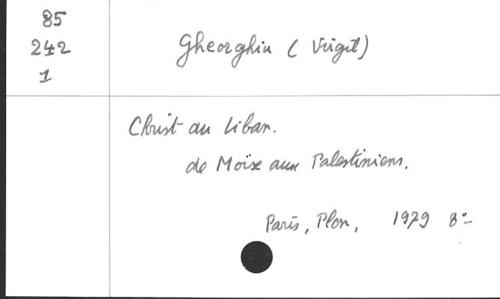 85
242
1
Gheorghiu (Virgil)
Christ au Liban.
de Moïse aux Palestiniens.
Paris, Plon, 1979 8º